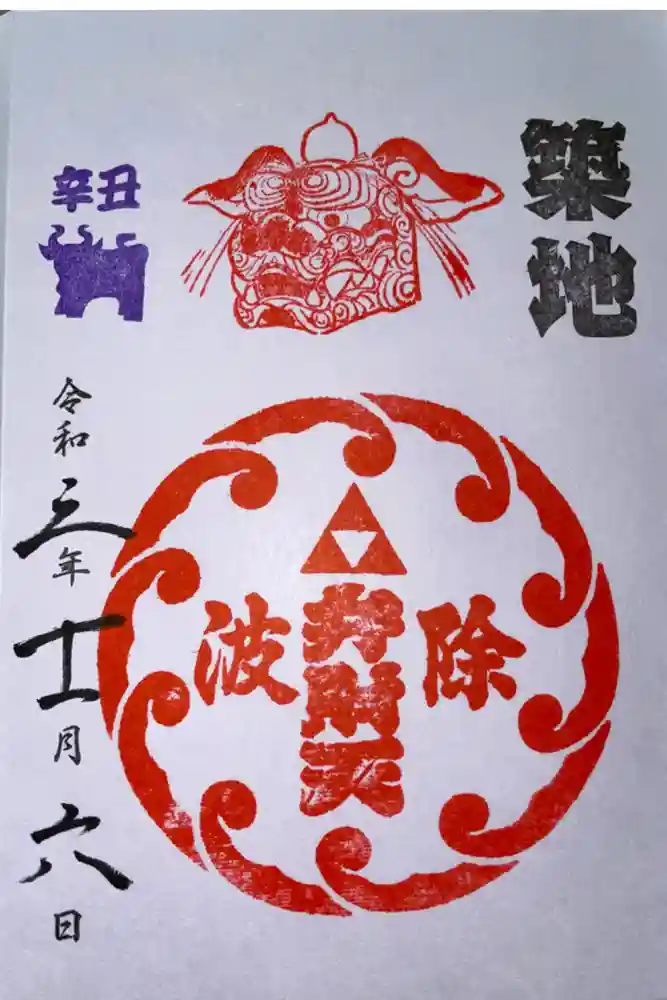 築地
除
弁財天
波
辛丑
令和三年十一月六日